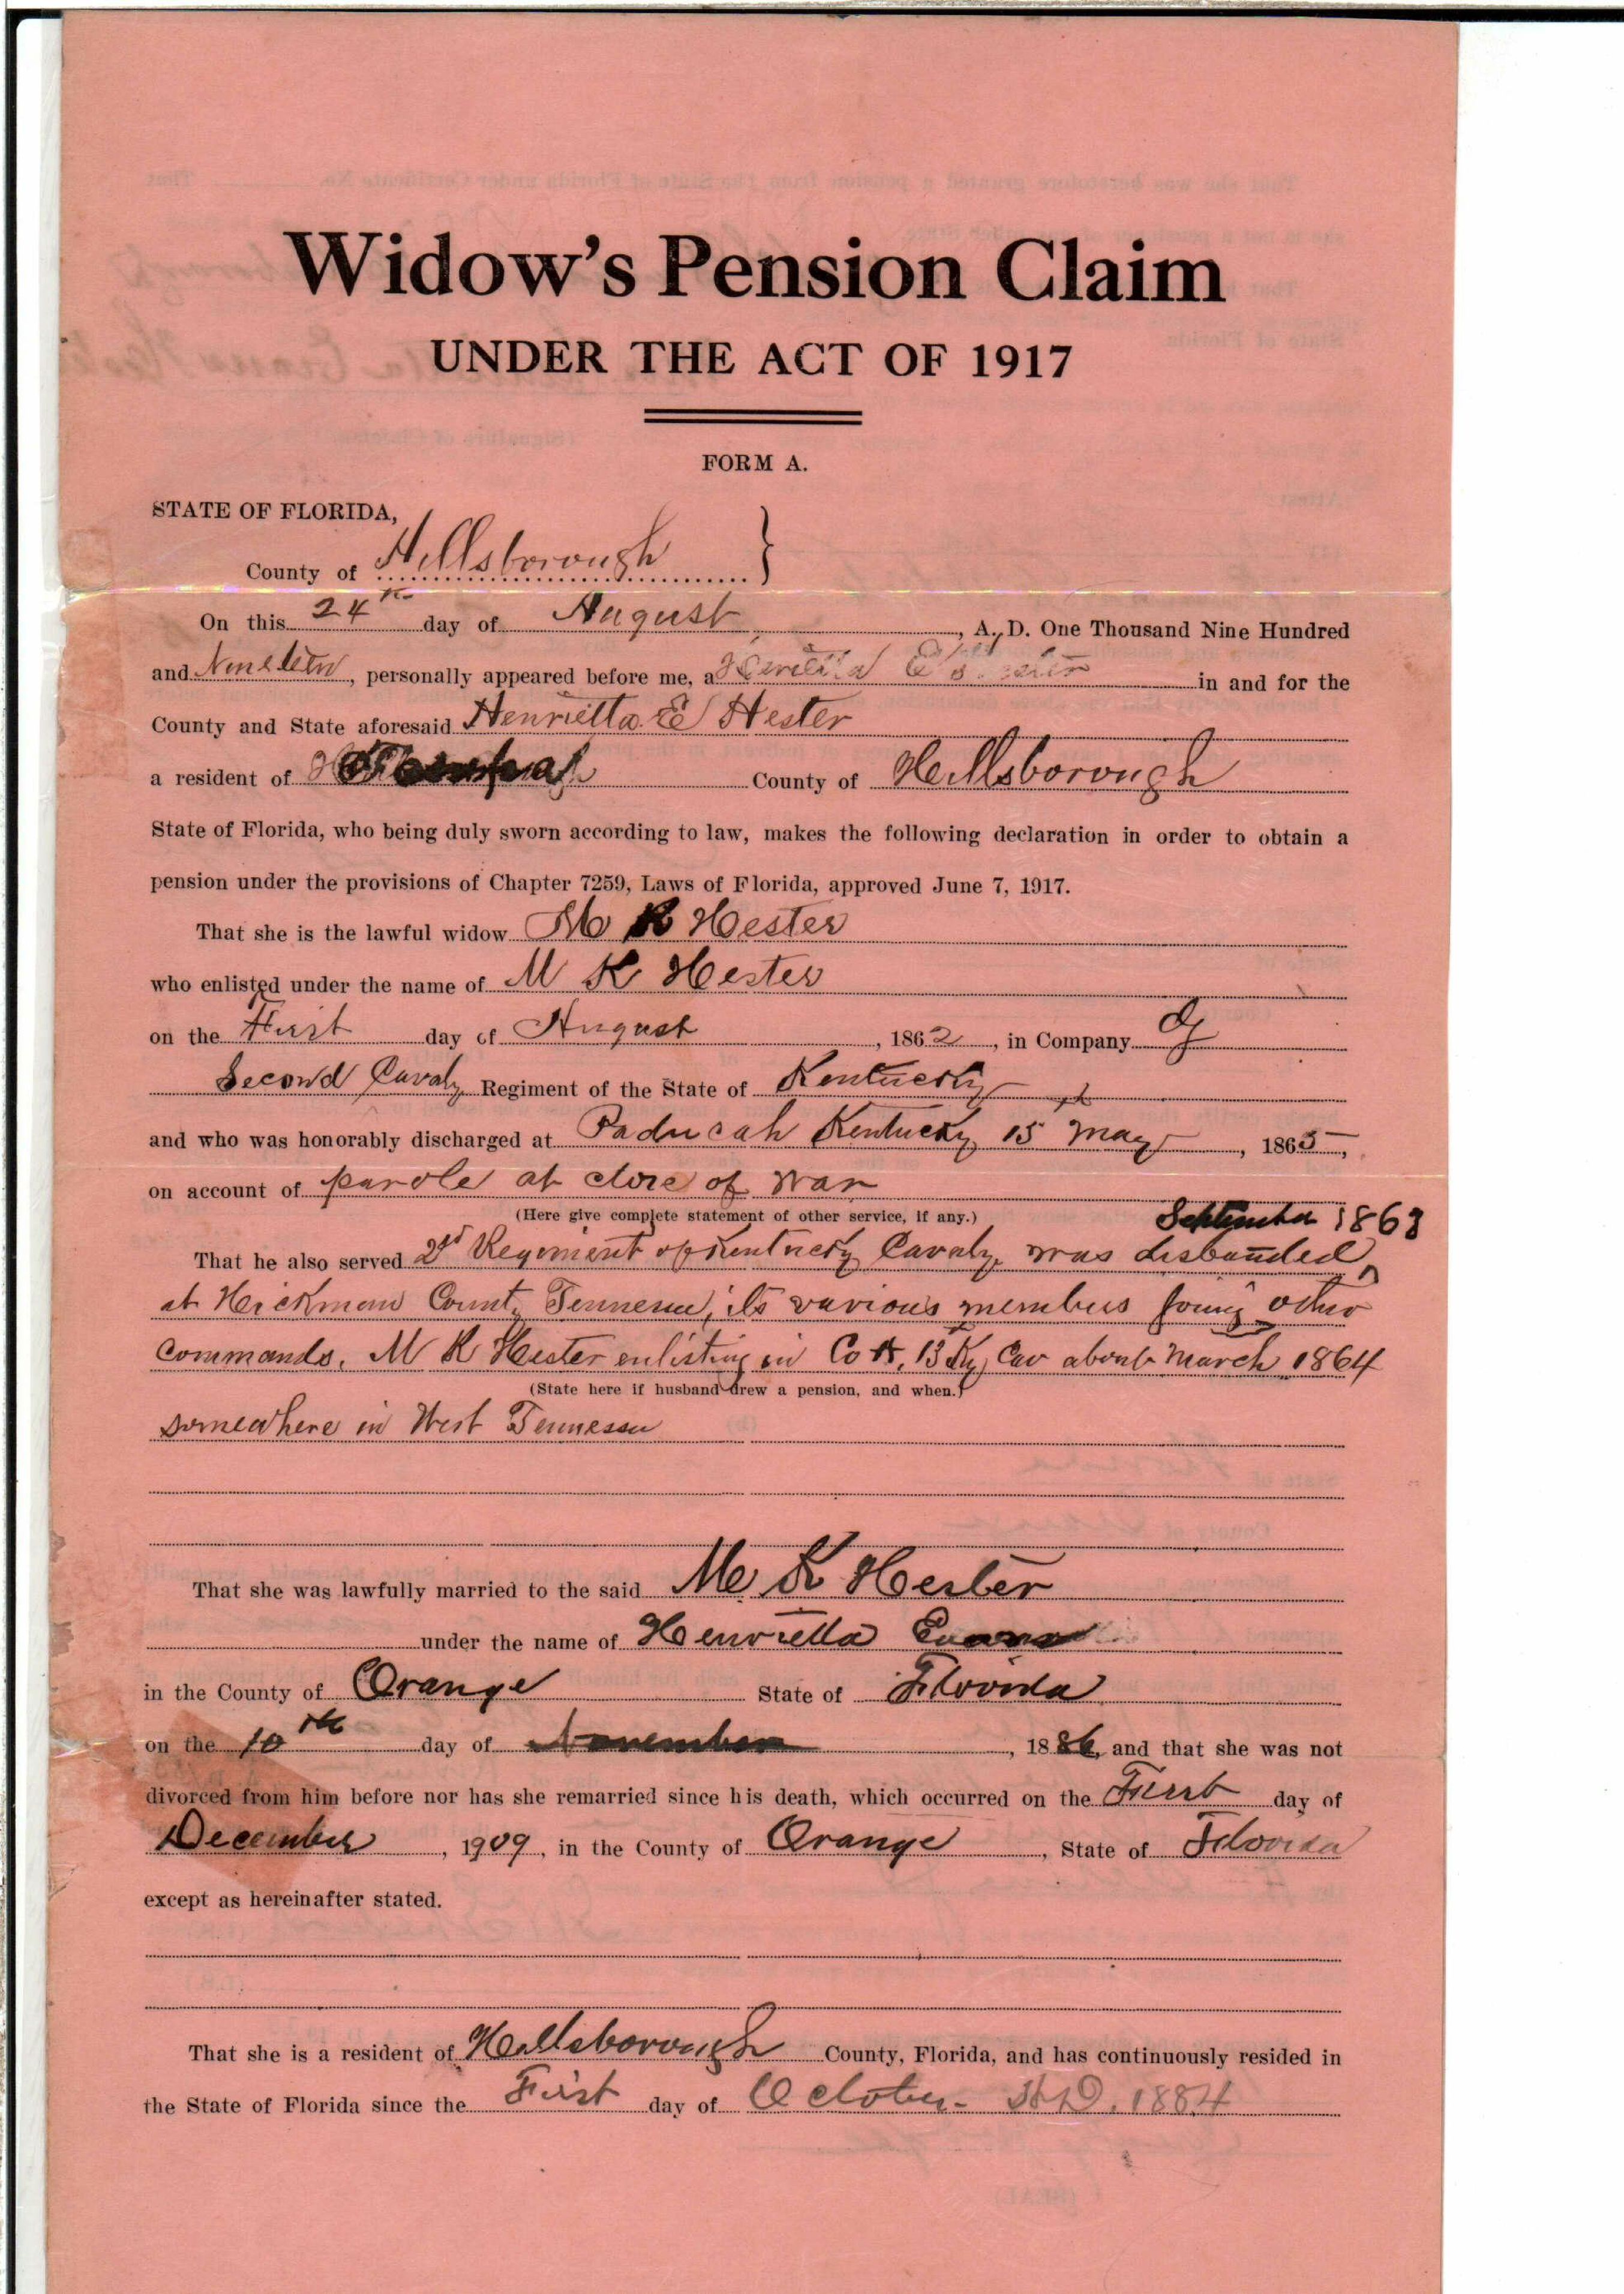 Widow's Pension Claim
UNDER THE ACT OF 1917
FORM A.
STATE OF FLORIDA,
County of Hillsborough }
On this 24th day of August, A. D. One Thousand Nine Hundred
and Nineteen, personally appeared before me, a Henrietta E in and for the
County and State aforesaid Henrietta E Hester
a resident of Tampa County of Hillsborough
State of Florida, who being duly sworn according to law, makes the following declaration in order to obtain a
pension under the provisions of Chapter 7259, Laws of Florida, approved June 7, 1917.
That she is the lawful widow M K Hester
who enlisted under the name of M K Hester
on the First day of August, 1862, in Company G
Second Cavaly Regiment of the State of Kentucky
and who was honorably discharged at Paducah Kentucky 15th May, 1865,
on account of parole at close of War
(Here give complete statement of other service, if any.)
September 1863
That he also served 2nd Regiment of Kentucky Cavaly, was disbanded
at Hickman County Tennessee, its various members joing other
commands. M K Hester enlisting in Co A, 13 Ky Cav about March 1864
(State here if husband drew a pension, and when.)
somewhere in West Tennessee
That she was lawfully married to the said M. K Hester
under the name of Henrietta Evans
in the County of Orange State of Florida
on the 10th day of November, 1886, and that she was not
divorced from him before nor has she remarried since his death, which occurred on the First day of
December, 1909, in the County of Orange, State of Florida
except as hereinafter stated.
That she is a resident of Hillsborough County, Florida, and has continuously resided in
the State of Florida since the First day of October A.D. 1884